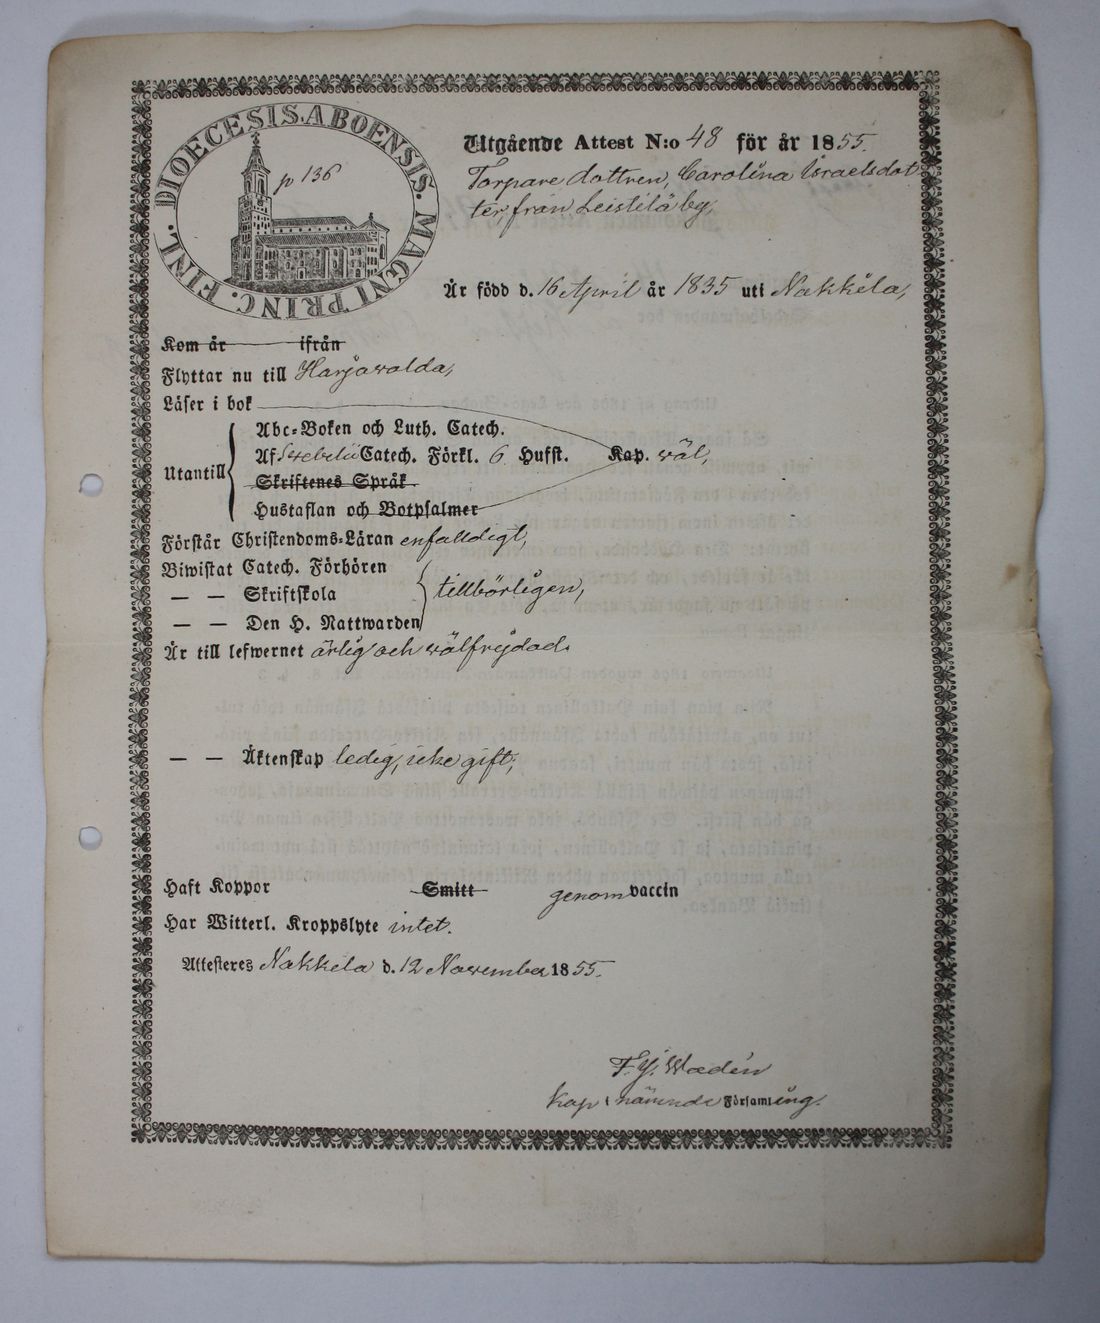 DIOECESIS. ABOENSIS. MAGNI PRINC. FINL.
p 136
Utgående Attest N:o 48 för år 1855.
Torpare dottren, Carolina Israelsdot-
ter från Leistilä by,
Är född d. 16 April år 1835 uti Nakkila,
Kom år ifrån
Flyttar nu till Harjavalda,
Läser i bok
Utantill
Abc-Boken och Luth. Catech.
Af Svebelii Catech. Förkl. 6 Hufst. Kap. väl,
Skriftenes Språk
Hustaflan och Botpsalmer
Förstår Christendoms-Läran enfalldigt,
Biwistat Catech. Förhören
— — Skriftskola tillbörligen,
— — Den H. Nattwarden
Är till lefwernet ärlig och välfrejdad.
— — Äktenskap ledig, icke gift,
Haft Koppor Smitt genom vaccin
Har Witterl. Kroppslyte intet.
Attesteres Nakkila d. 12 November 1855.
F. J. Wadén
Kap i nämnde Församling.